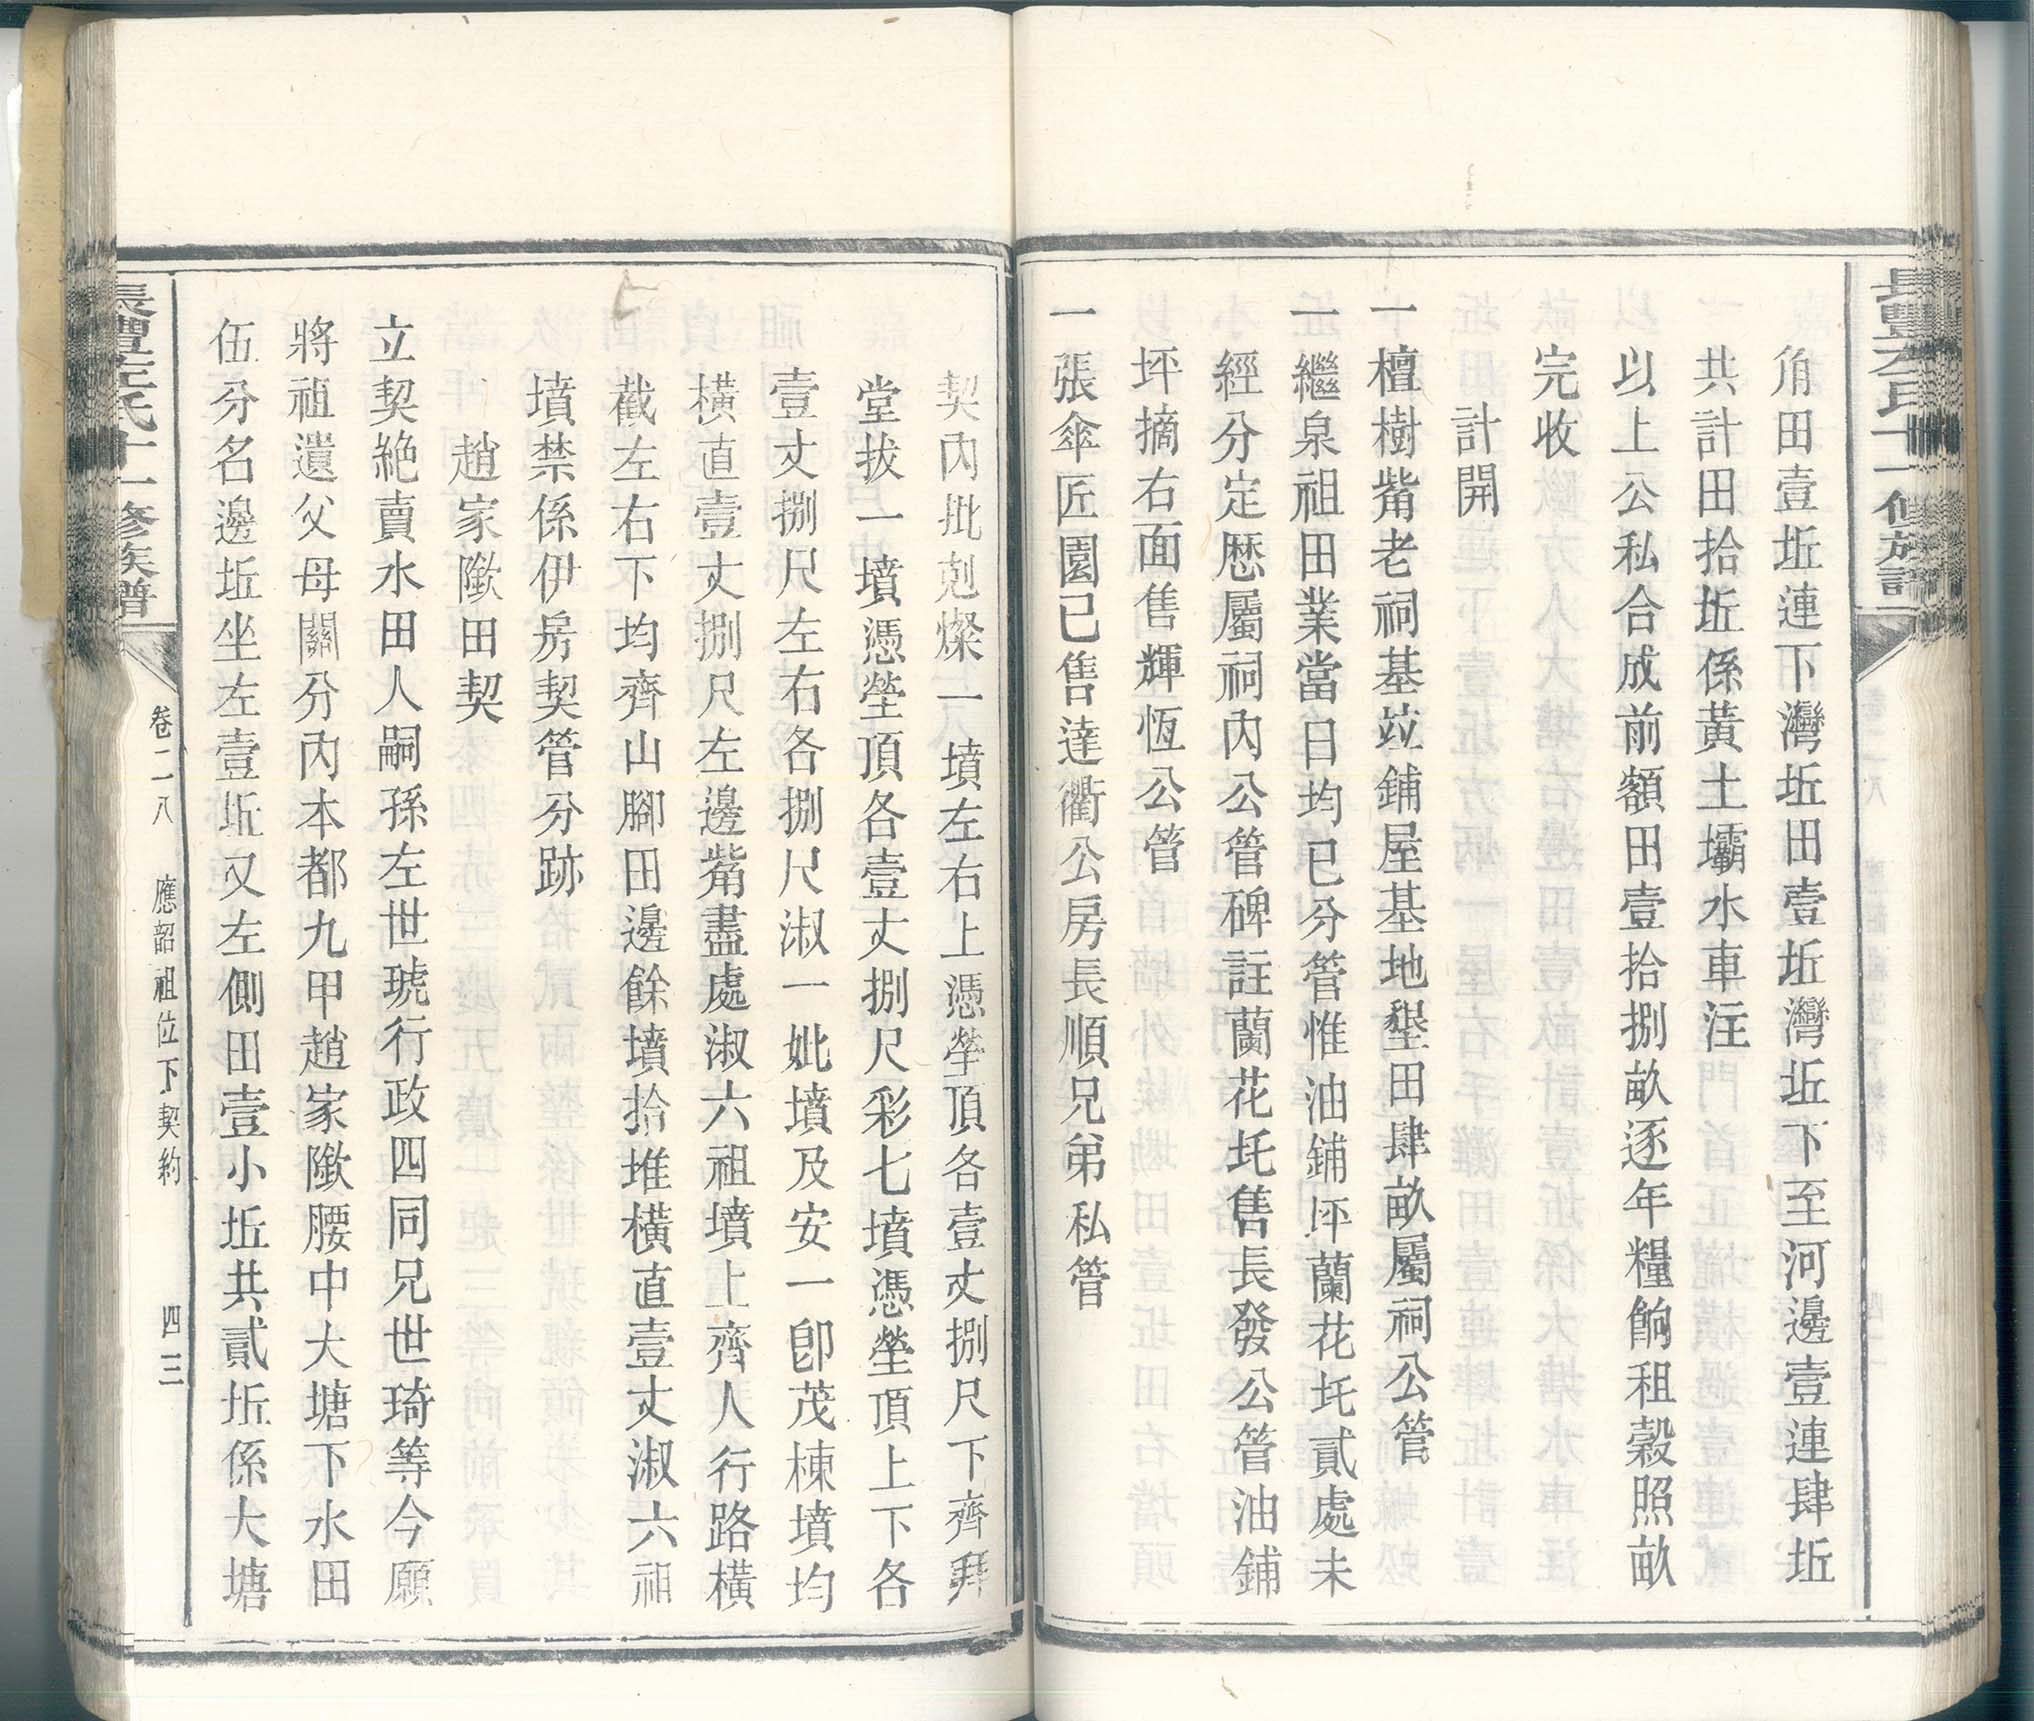 角田壹坵連下灣坵田壹坵灣坵下至河邊壹連肆坵
共計田拾坵係黃土壩水車注
以上公私合成前額田壹拾捌畝逐年糧餉租穀照畝
完收
計開
一檀樹觜老祠基竝鋪屋基地墾田肆畝屬祠公管
一繼泉祖田業當日均已分管惟油鋪坪蘭花圫貳處未
經分定歷屬祠內公管碑註蘭花圫售長發公管油鋪
坪摘右面售輝恆公管
一張傘匠園已售達衢公房長順兄弟私管
契內批剋燦一墳左右上憑塋頂各壹丈捌尺下齊拜
堂拔一墳憑塋頂各壹丈捌尺彩七墳憑塋頂上下各
壹丈捌尺左右各捌尺淑一妣墳及安一卽茂棟墳均
橫直壹丈捌尺左邊觜盡處淑六祖墳上齊人行路橫
截左右下均齊山腳田邊餘墳拾堆橫直壹丈淑六祖
墳禁係伊房契管分跡
趙家隞田契
立契絶賣水田人嗣孫左世琥行政四同兄世琦等今願
將祖遺父母鬮分內本都九甲趙家隞腰中大塘下水田
伍分名邊坵坐左壹坵又左側田壹小坵共貳坵係大塘
卷二八　應韶祖位下契約　四三